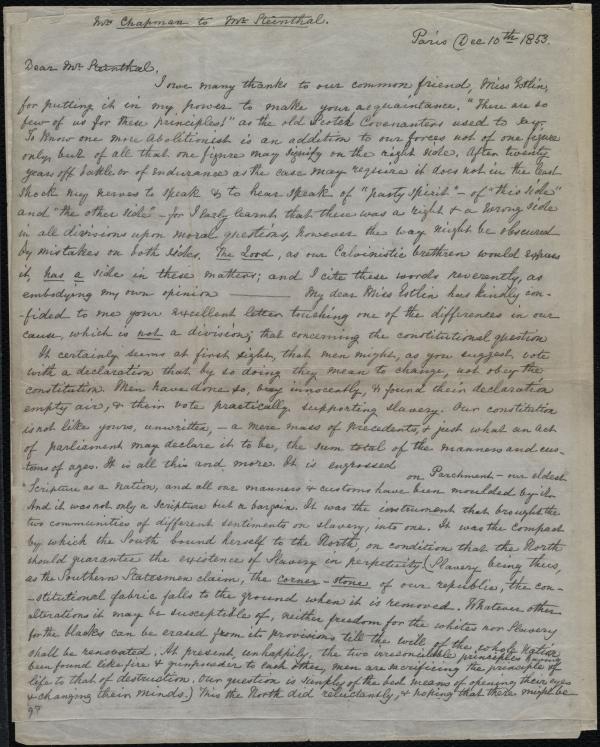 Mrs Chapman to Mr Steinthal.
Paris Dec 10th 1853.
Dear Mr Steinthal,
I owe many thanks to our common friend, Miss Estlin,
for putting it in my power to make your acquaintance. "There are so
few of us for these principles!" as the old Scotch Covenanters used to say.
To know one more Abolitionist is an addition to our forces not of one figure
only, but of all that one figure may signify on the right side. After twenty
years off battle or of endurance as the case may require it does not in the least
shock my nerves to speak & to hear speak of "party spirit" – of "this side"
and "the other side" – for I early learnt that there was a right & a wrong side
in all divisions upon moral questions, however the way might be obscured
by mistakes on both sides. The Lord, as our Calvinistic brethren would express
it, has a side in these matters; and I cite these words reverently, as
embodying my own opinion ——— My dear Miss Estlin has kindly con-
fided to me your excellent letter touching one of the differences in our
cause, which is not a division; that concerning the constitutional question
It certainly seems at first sight, that men might, as you suggest, vote
with a declaration that by so doing they mean to change, not obey the
constitution. Men have done so, very innocently, & found their declaration
empty air, & their vote practically supporting slavery. Our constitution
is not like yours, unwritten, – a mere mass of precedents, & just what an act
of parliament may declare it to be, the sum total of the manners and cus-
toms of ages. It is all this and more. It is engrossed on Parchment – our eldest
Scripture as a nation, and all our manners & customs have been moulded by it.
And it was not only a Scripture but a bargain. It was the instrument that brought the
two communities of different sentiments on slavery, into one. It was the compact
by which the South bound herself to the North, on condition that the North
should guarantee the existence of Slavery in perpetuity (Slavery being thus,
as the Southern Statesmen claim, the corner-stone of our republic, the con-
-stitutional fabric falls to the ground when it is removed. Whatever other
alterations it may be susceptible of, neither freedom for the whites nor Slavery
for the blacks can be erased from its provisions till the will of the whole nation
shall be renovated. At present, unhappily, the two irreconcilable principles having
been found like fire & gunpowder to each other, men are sacrificing the principle of
life to that of destruction. Our question is simply of the best means of opening their eyes
& changing their minds.) This the North did reluctantly, & hoping that there might be